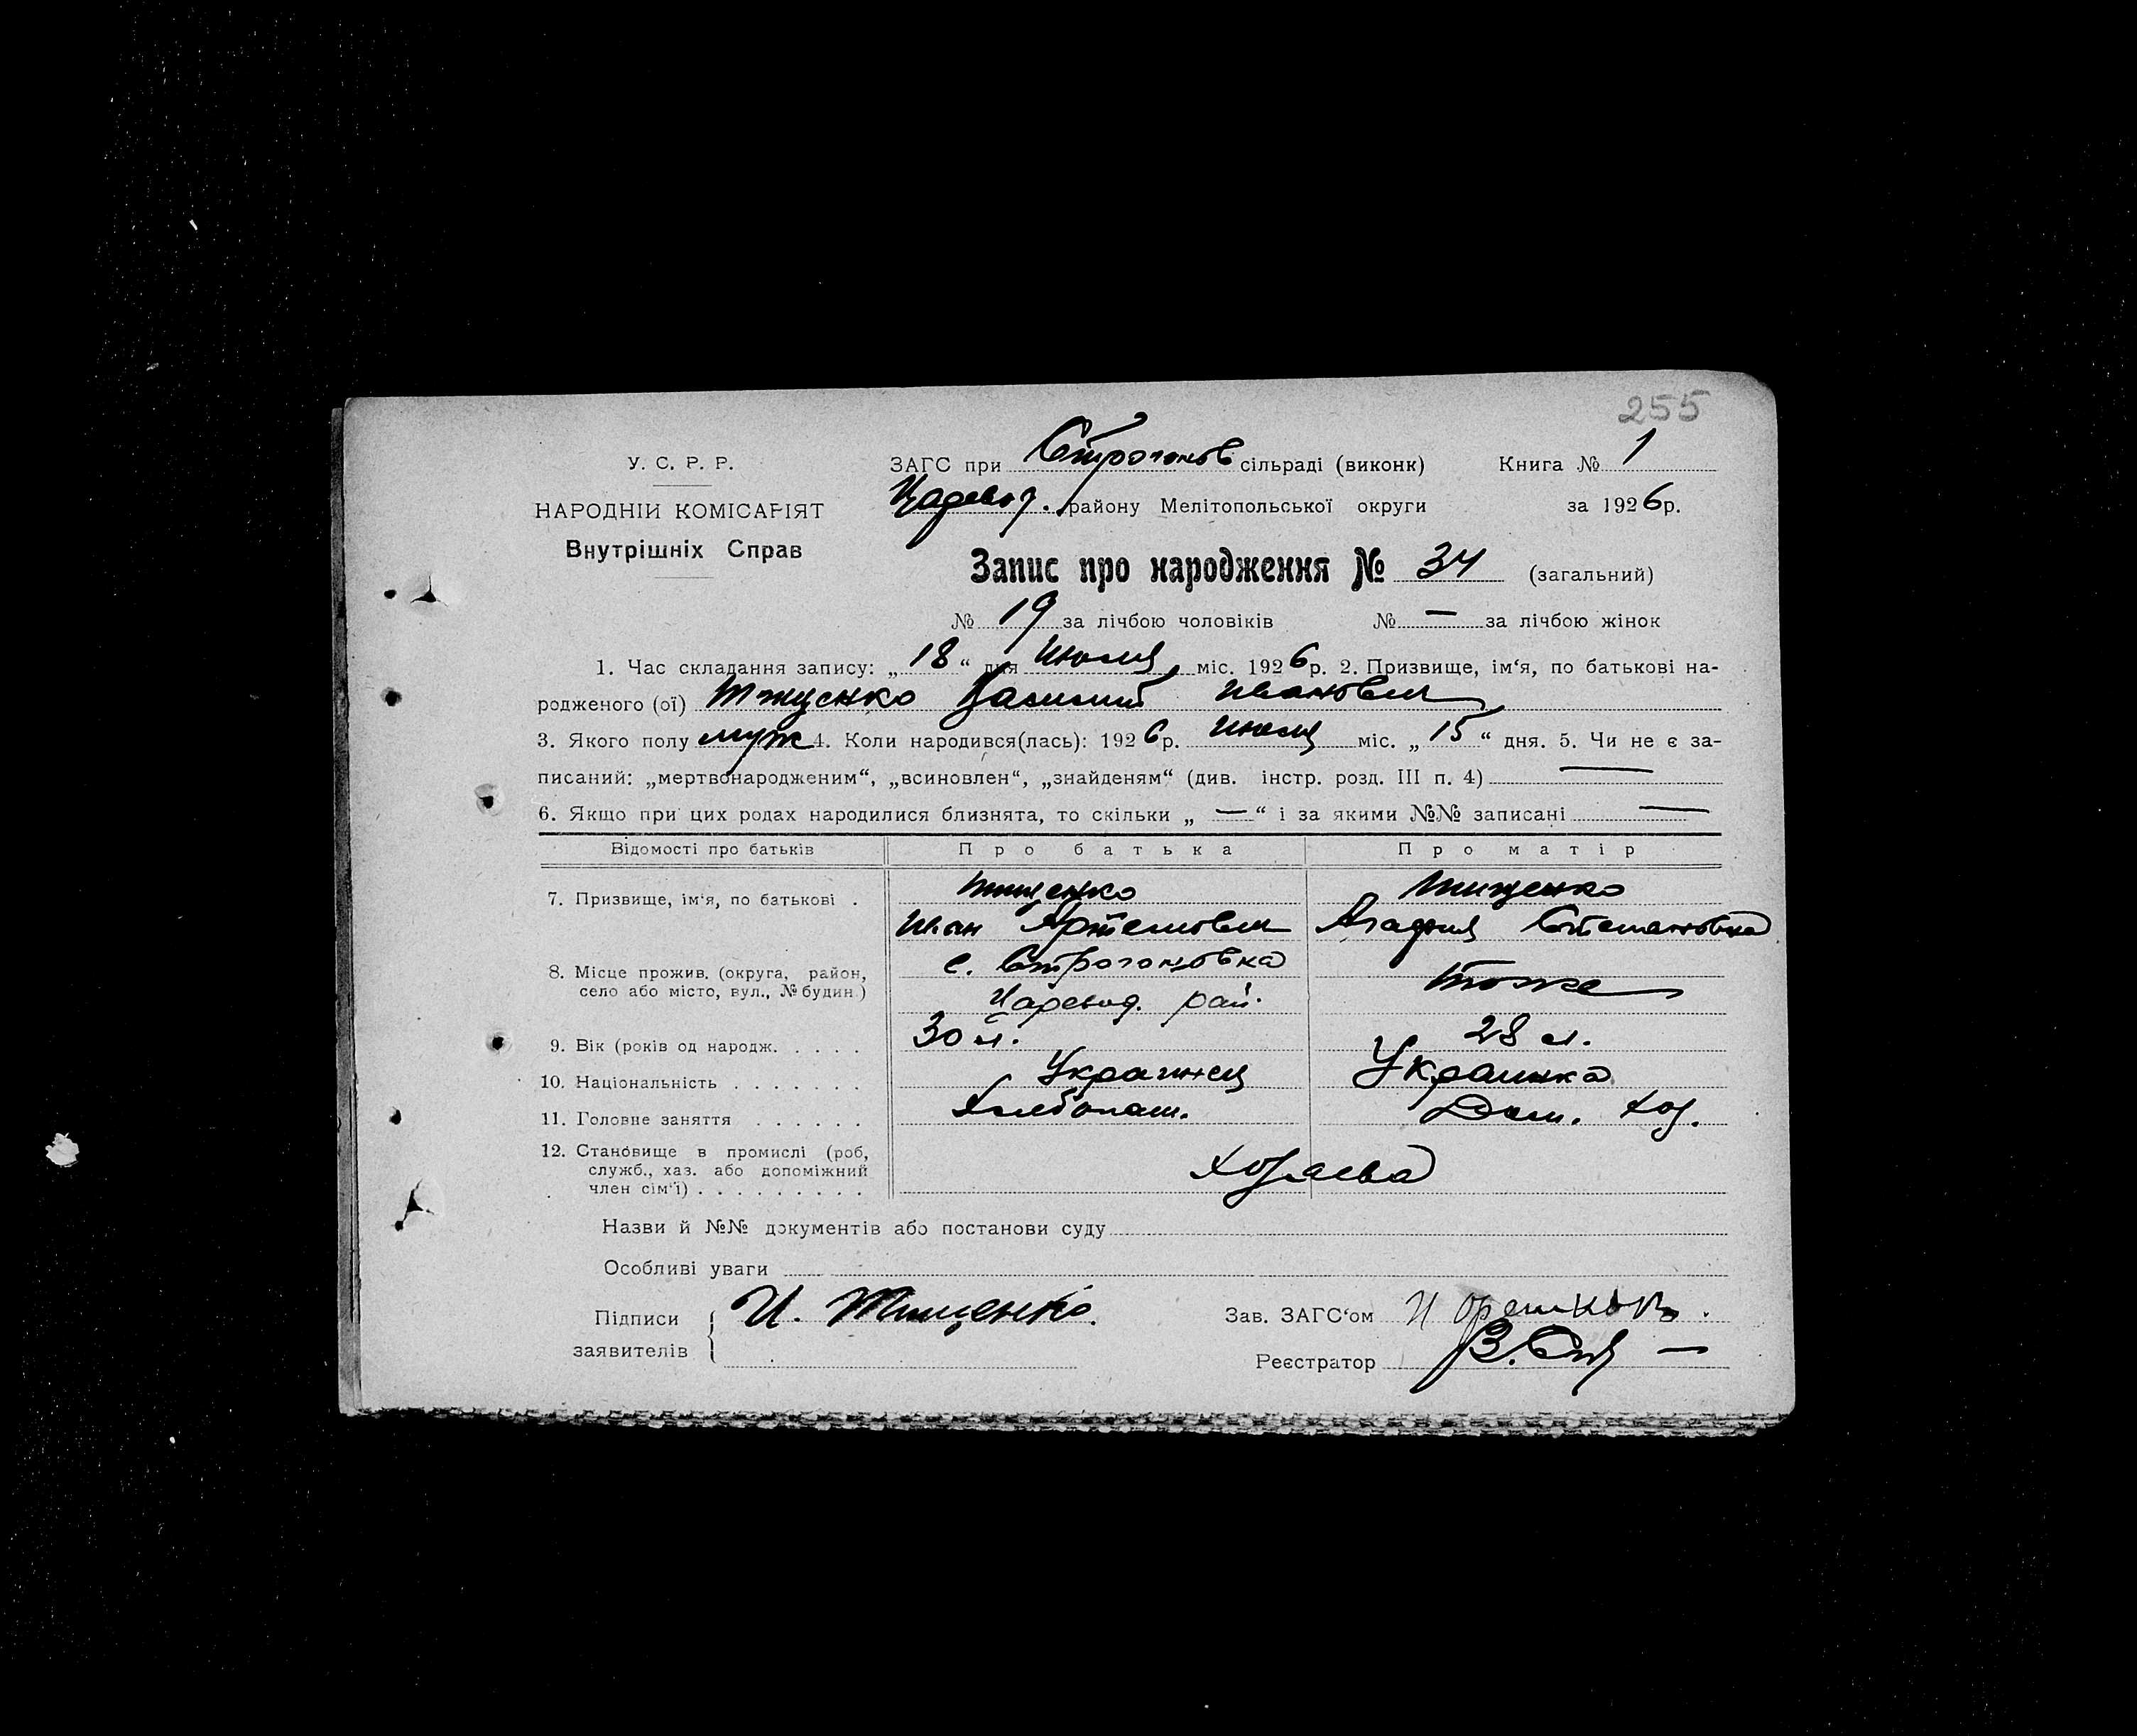 255
У. С. Р. Р.
НАРОДНІЙ КОМІСАРІЯТ
Внутрішніх Справ
ЗАГС при Строгонов сільраді (виконк) Книга № 1
району Мелітопольської округи за 1926р.
Запис про народження № 34 (загальний)
№ 19 за лічбою чоловіків № — за лічбою жінок
1. Час складання запису: „18“ дня Июля міс. 1926р. 2. Призвище, ім‘я, по батькові на-
родженого (ої) Тищенко Василий Иванович
3. Якого полу муж 4. Коли народився(лась): 1926р. Июля міс. „15“ дня. 5. Чи не є за-
писаний: „мертвонародженим“, „всиновлен“, „знайденям“ (див. інстр. розд. III п. 4) —
6. Якщо при цих родах народилися близнята, то скільки „ — “ і за якими №№ записані —
Відомості про батьків Про батька Про матір
7. Призвище, ім‘я, по батькові . Тищенко Тищенко
Иван Артемович Агафия Степановна
8. Місце прожив. (округа, район, с. Строгоновка
село або місто, вул., № будин.) Царевод. рай. тоже
9. Вік (років од народж. . . . . 30 л. 28 л.
10. Національність . . . . . . Украинец Украинка
11. Головне заняття . . . . . . Хлебопаш. Дом. хоз.
12. Становище в промислі (роб,
служб., хаз. або допоміжний Хозяева
член сім‘ї) . . . . . . . . .
Назви й №№ документів або постанови суду
Особливі уваги
Підписи И. Тищенко. Зав. ЗАГС‘ом
заявителів Реєстратор